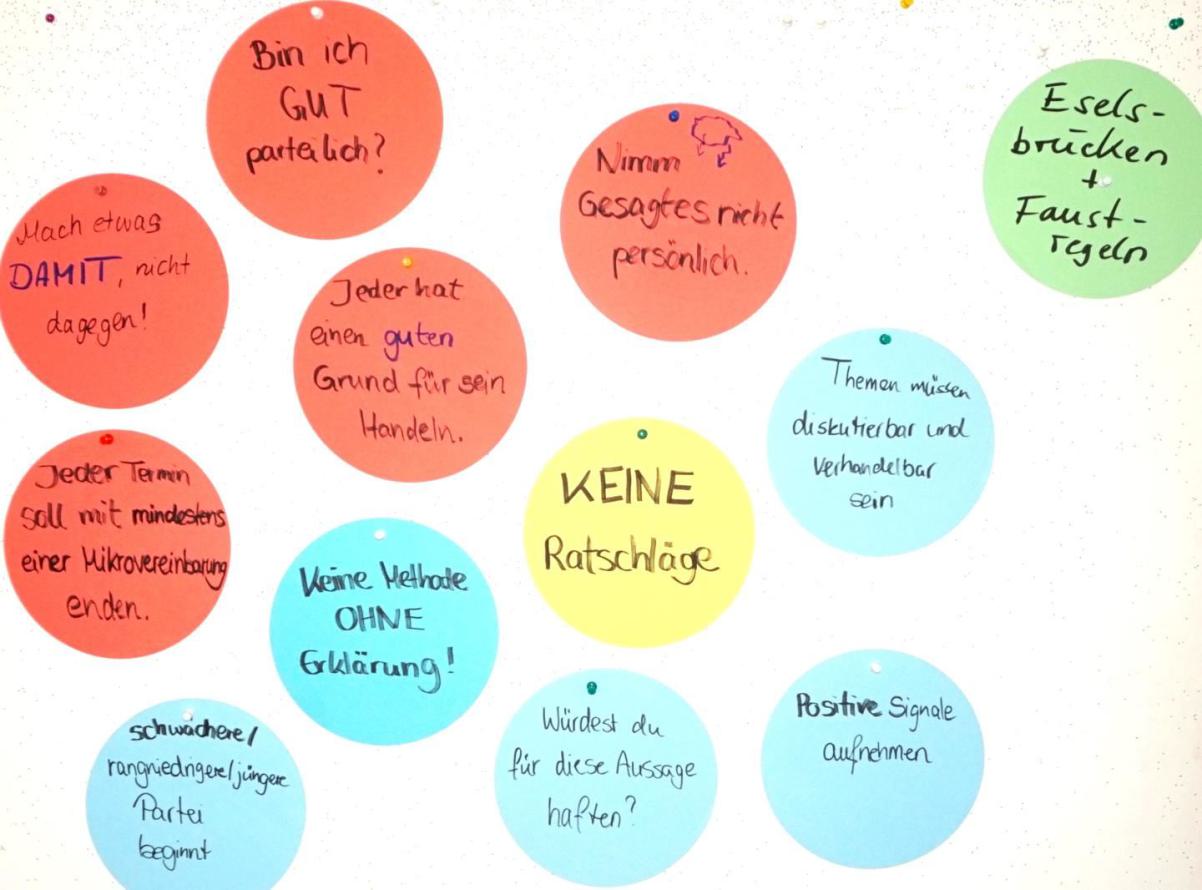 Bin ich
GUT
parteilich?
Esels-
brücken
+
Faust-
regeln
Nimm
Gesagtes nicht
persönlich.
Mach etwas
DAMIT, nicht
dagegen!
Jeder hat
einen guten
Grund für sein
Handeln.
Themen müssen
diskutierbar und
verhandelbar
sein
Jeder Termin
soll mit mindestens
einer Mikrovereinbarung
enden.
KEINE
Ratschläge
Keine Methode
OHNE
Erklärung!
schwächere/
rangniedrigere/jüngere
Partei
beginnt
Würdest du
für diese Aussage
haften?
Positive Signale
aufnehmen